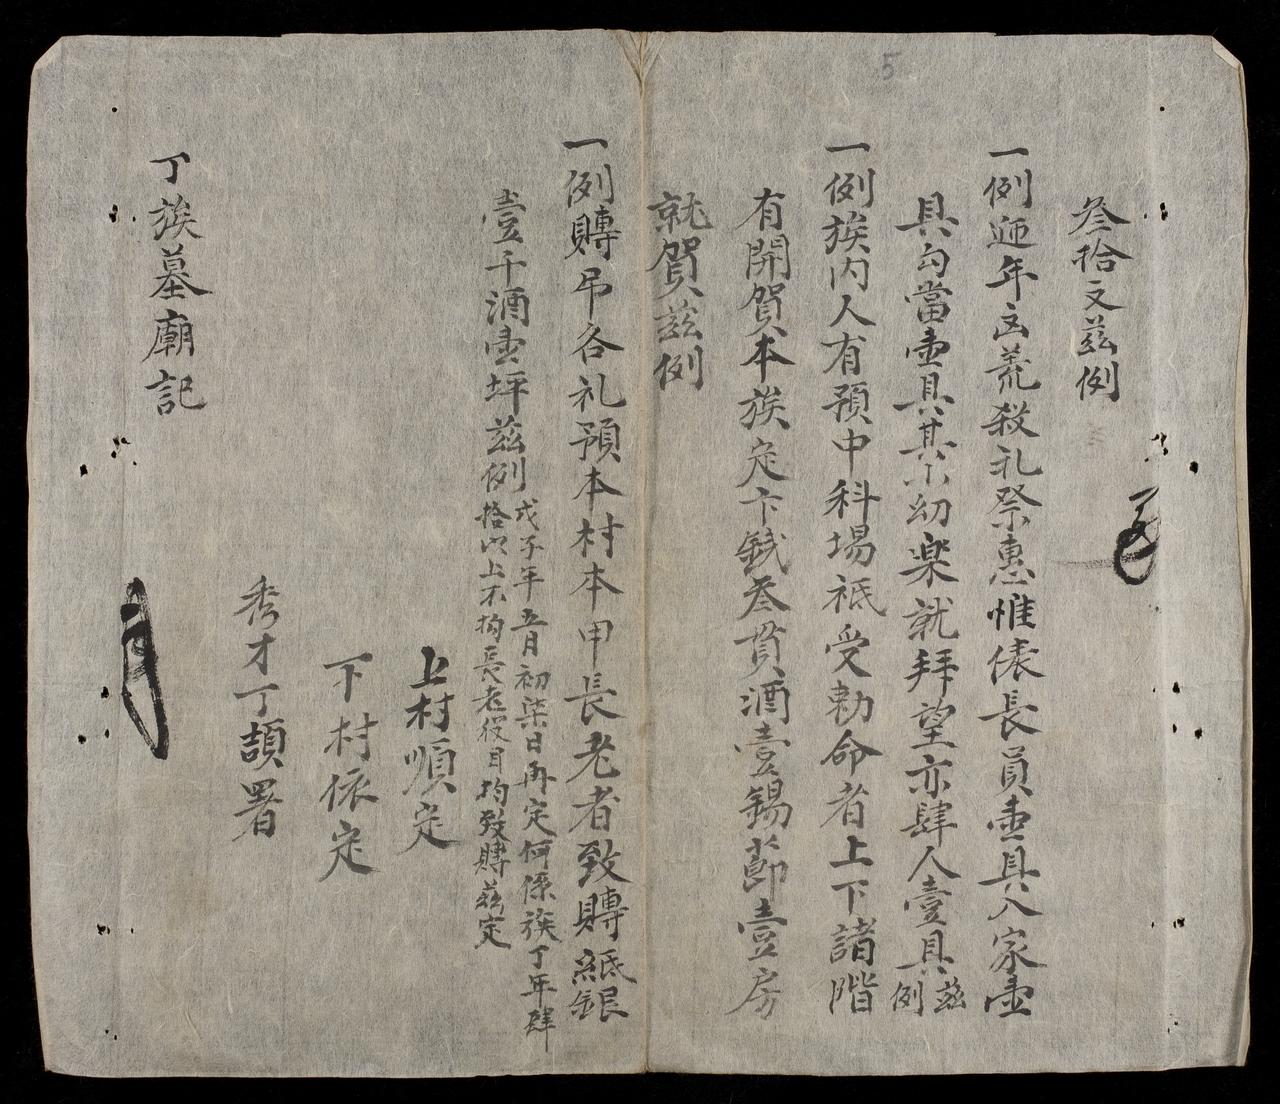 5
叄拾文茲例
一例迎年凶荒殺礼祭惠惟俵長員壺具入家壺
具勾當壺具其小幼楽就拜望亦肆人壹具茲例
一例族内人有預中科場祗受勅命者上下諸階
有開賀本族定卞銭叄貫酒壹錫莭壹房
就賀茲例
一例賻吊各礼預本村本甲長老者致賻紙銀
壹千酒壺坪茲例
戊子年五月初柒日再定何係族丁年肆
拾以上不拘長老役目均致賻茲定
上村順定
下村依定
秀才丁頡署
丁族墓廟記